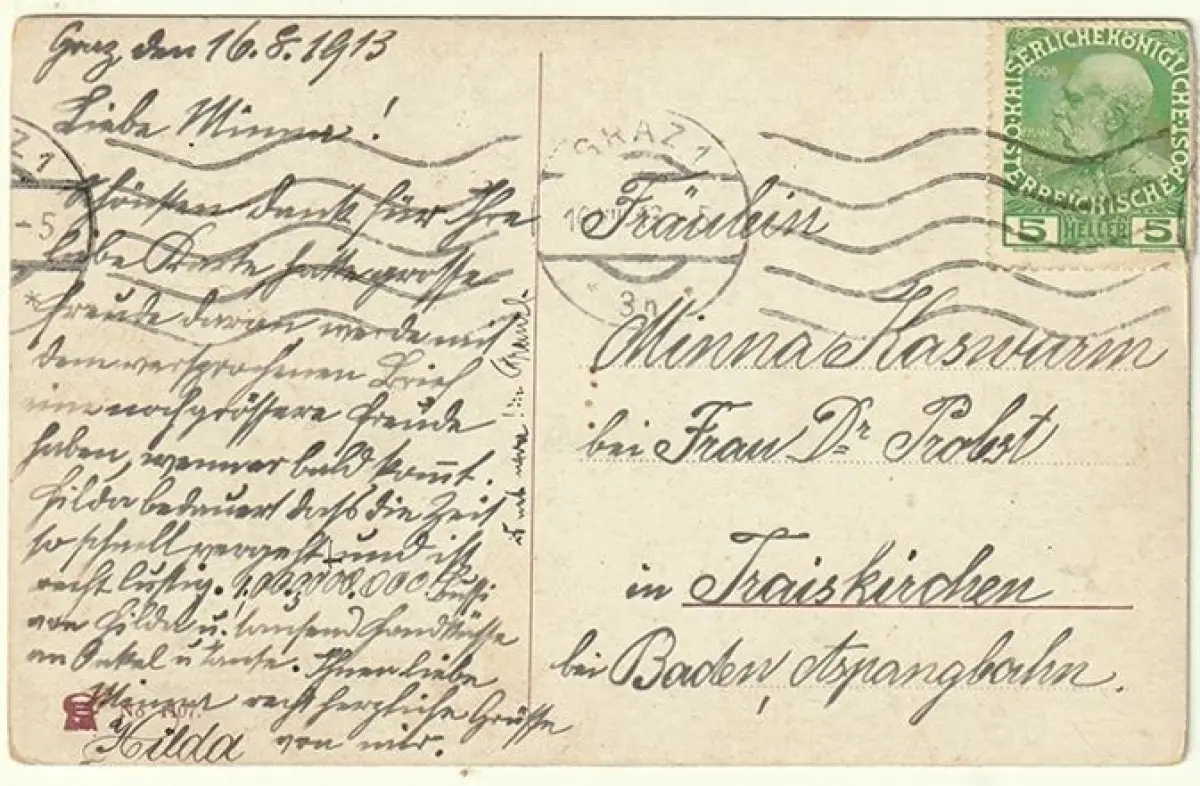 Graz, den 16.8.1913
Liebe Minna!
Schönsten Dank für Ihre
liebe Karte hatte grosse
Freude daran werde mit
dem versprochenen Brief
eine noch grössere Freude
haben, wenn er bald kommt.
Hilda bedauert dass die Zeit
so schnell vergeht und ist
recht lustig. 1,000.000.000 Bussi
von Hilda u. tausend Handküsse
an Onkel u Tante. Ihnen liebe
Minna recht herzliche Grüsse
Hilda von mir.
No 1107.
GRAZ 1
Z 1
-5
Fräulein
Minna Kaswurm
bei Frau Dr Probst
in Traiskirchen
bei Baden, Aspangbahn.
K.K. ÖSTERREICHISCHE POST
KAISERLICHE KÖNIGLICHE
1908
5 HELLER 5